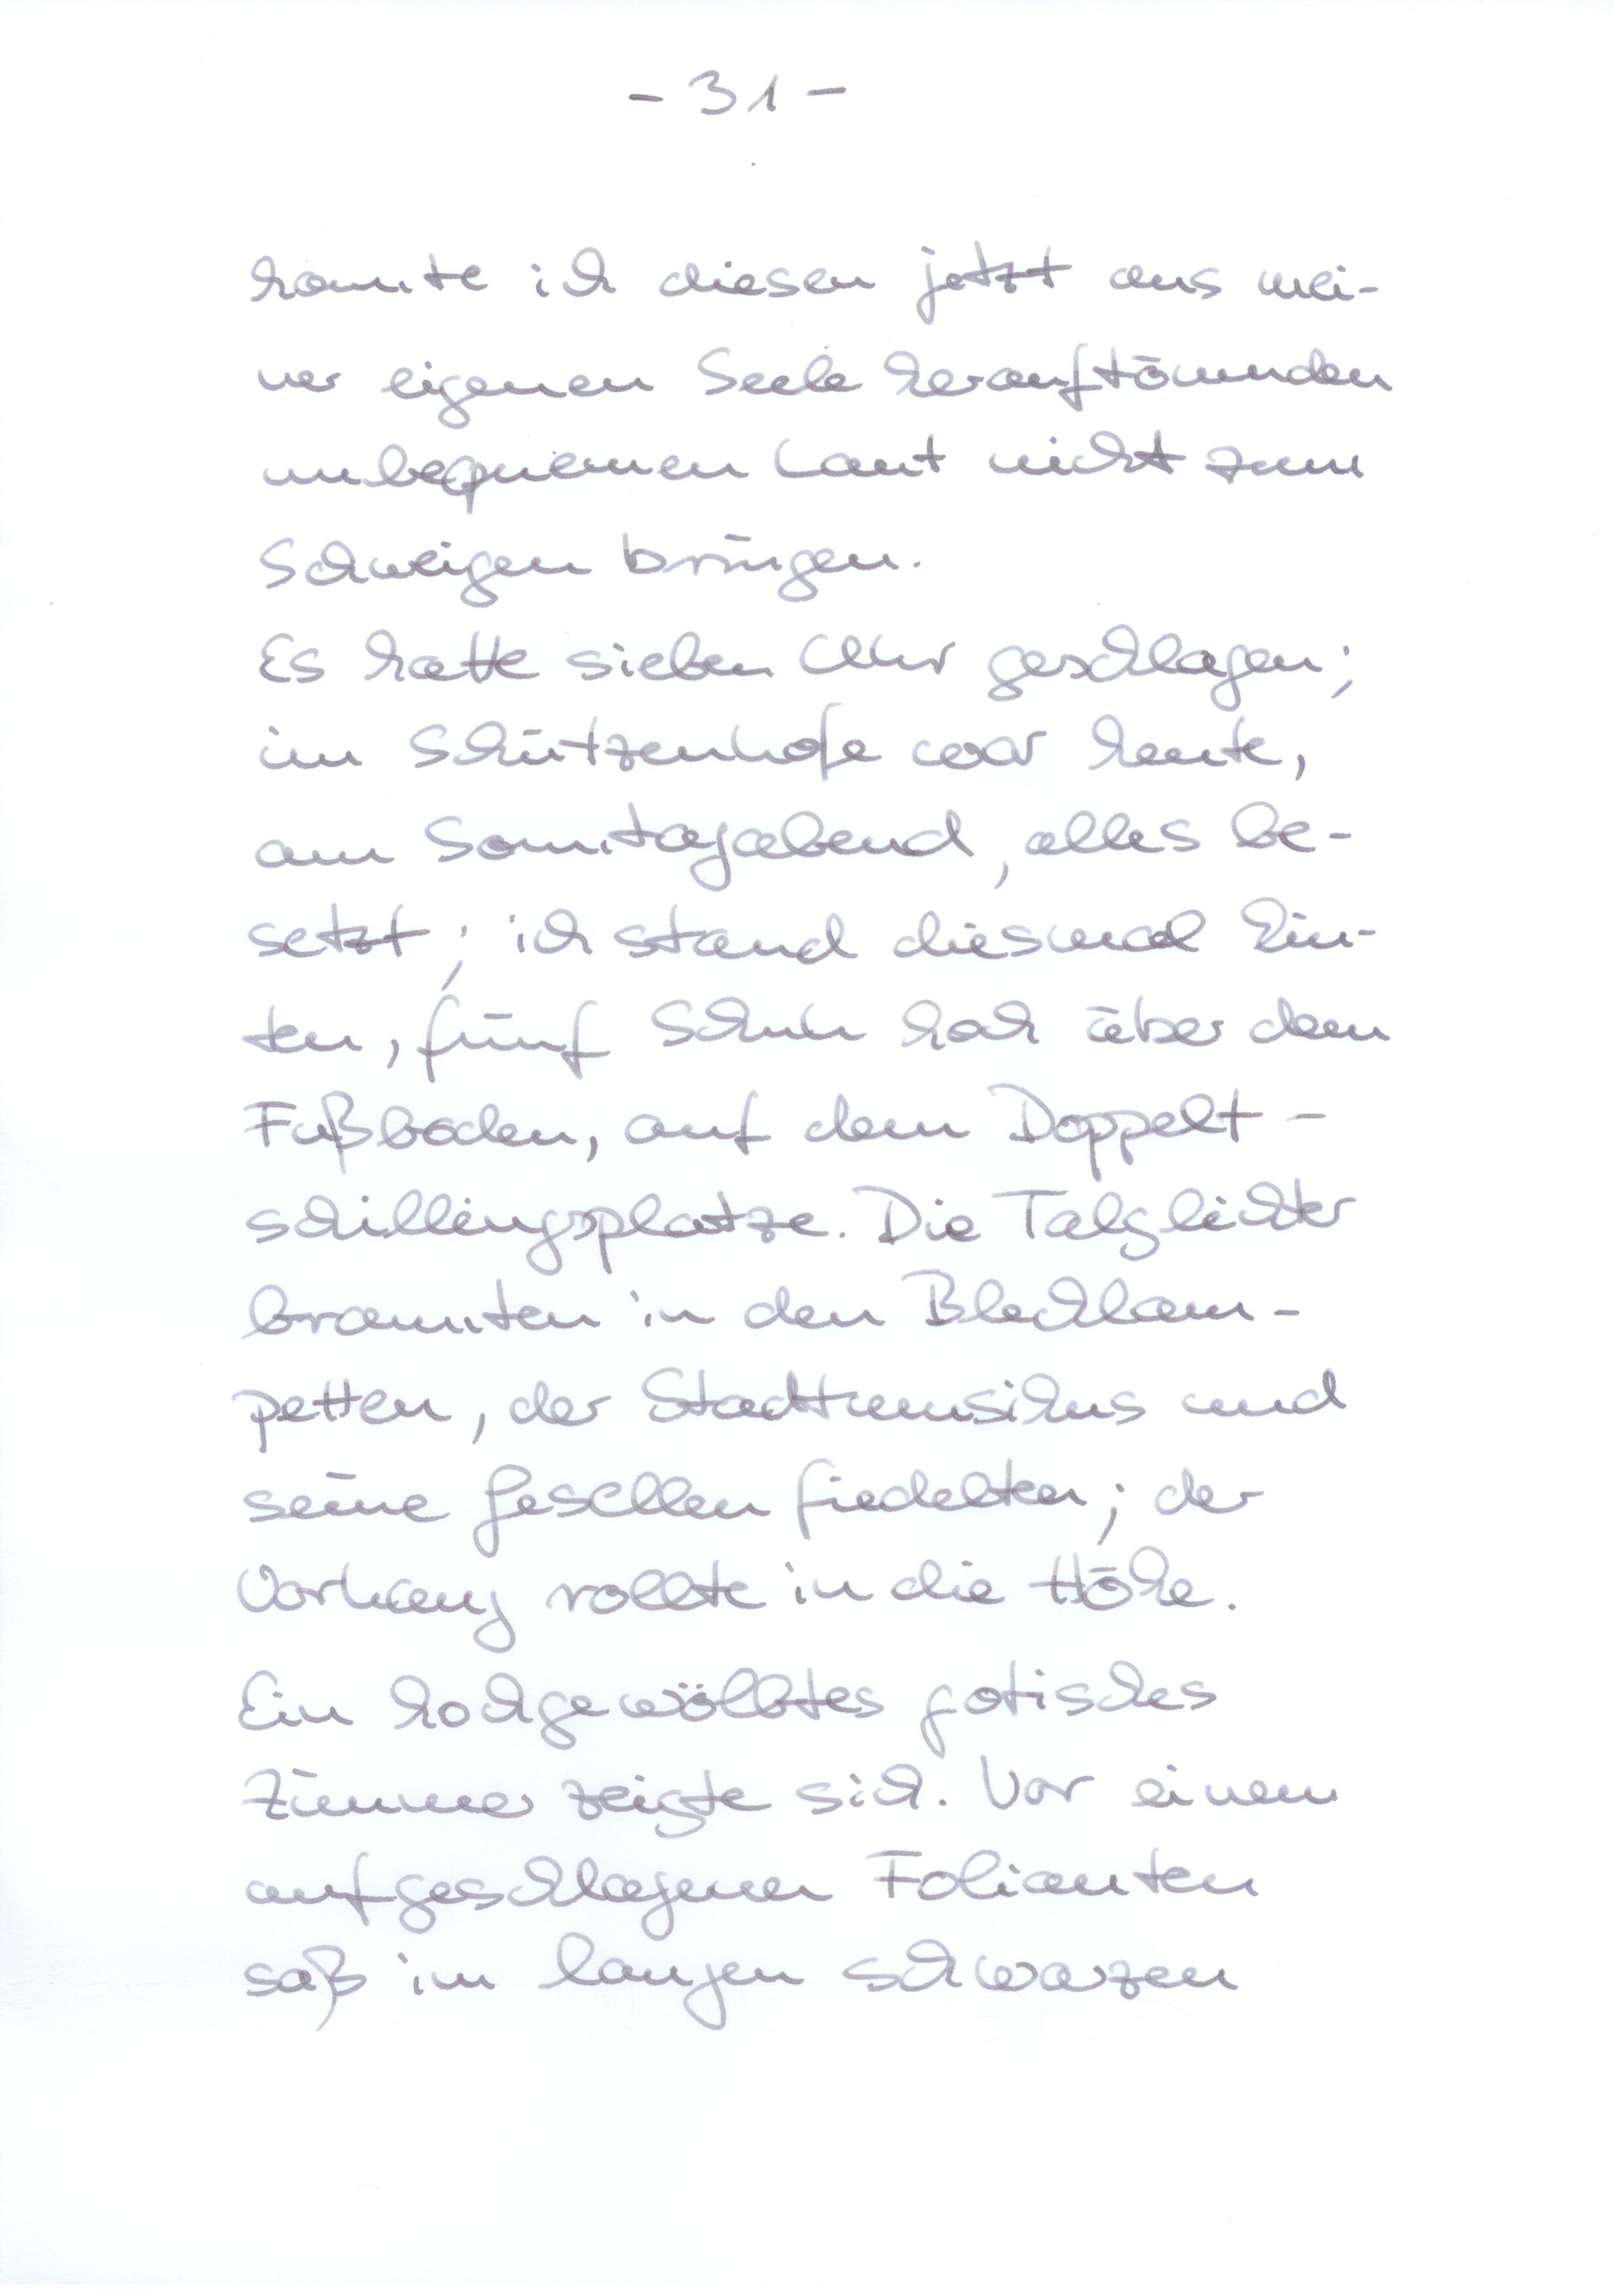 - 31 -
konnte ich diesen jetzt aus mei-
ner eigenen Seele herauftönenden
unbequemen Laut nicht zum
Schweigen bringen.
Es hatte sieben Uhr geschlagen;
im Schützenhofe war heute,
am Sonntagabend, alles be-
setzt; ich stand diesmal hin-
ten, fünf Schuh hoch über dem
Fußboden, auf dem Doppelt-
schillingsplatze. Die Talglichter
brannten in den Blechlam-
petten, der Stadtmusikus und
seine Gesellen fiedelten; der
Vorhang rollte in die Höhe.
Ein hochgewölbtes gotisches
Zimmer zeigte sich. Vor einem
aufgeschlagenen Folianten
saß im langen schwazen